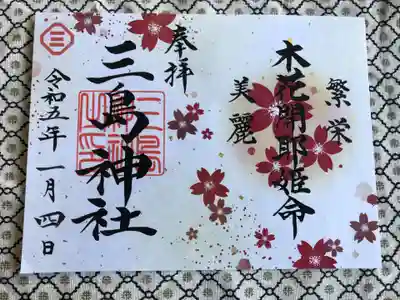 繁栄
木花開耶姫命
美麗
奉拝
三島神社
令和五年一月四日